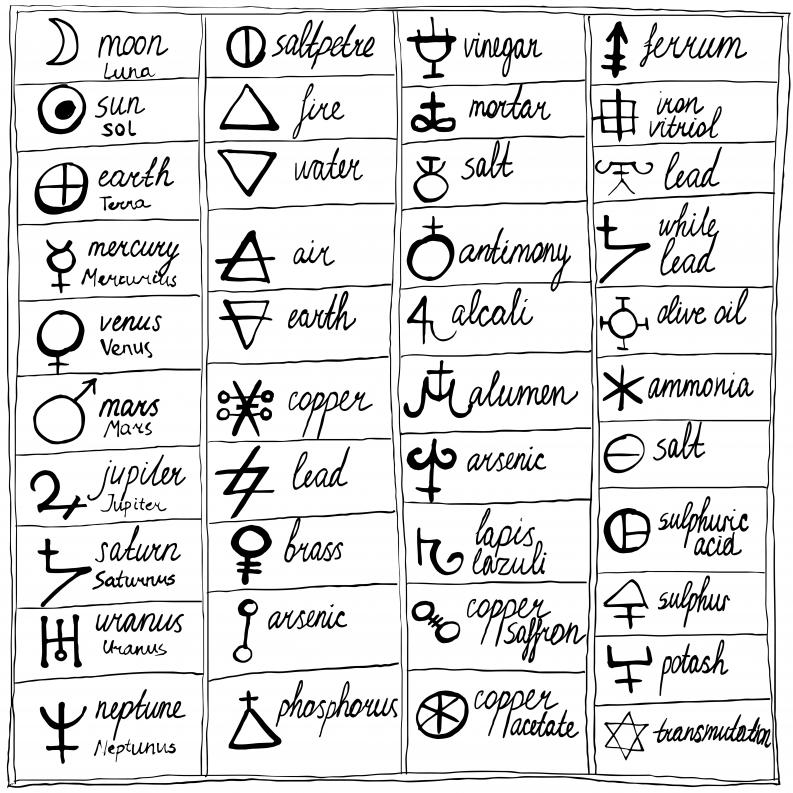 moon
Luna
sun
sol
earth
Terra
mercury
Mercurius
venus
Venus
mars
Mars
jupiter
Jupiter
saturn
Saturnus
uranus
Uranus
neptune
Neptunus
saltpetre
fire
water
air
earth
copper
lead
brass
arsenic
phosphorus
vinegar
mortar
salt
antimony
alcali
alumen
arsenic
lapis
lazuli
copper
saffron
copper
acetate
ferrum
iron
vitriol
lead
while
lead
olive oil
ammonia
salt
sulphuric
acid
sulphur
potash
transmutation